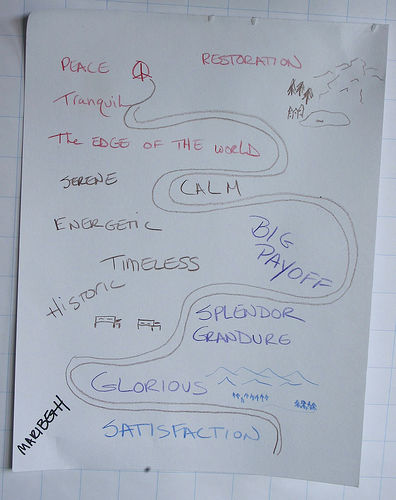 PEACE
RESTORATION
Tranquil
The EDGE OF THE WORLD
SERENE
CALM
ENERGETIC
BIG
PAYOFF
TIMELESS
HISTORIC
SPLENDOR
GRANDURE
GLORIOUS
SATISFACTION
MARIBETH